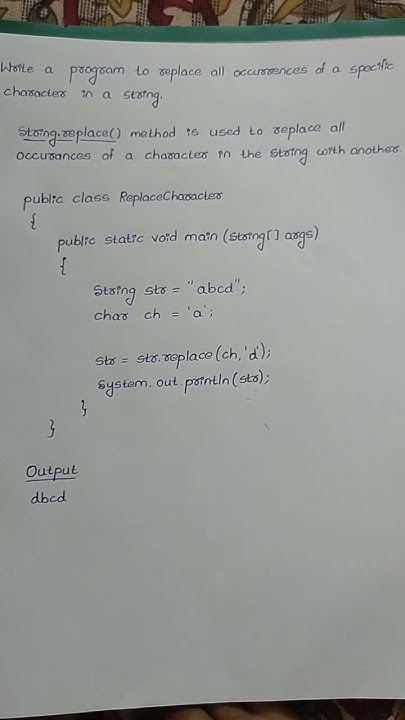 Write a program to replace all occurrences of a specific
character in a string.
String.replace() method is used to replace all
occurances of a character in the string with another.
public class ReplaceCharacter
{
public static void main (String[] args)
{
String str = "abcd";
char ch = 'a';
str = str.replace(ch,'d');
System.out.println(str);
}
}
Output
dbcd